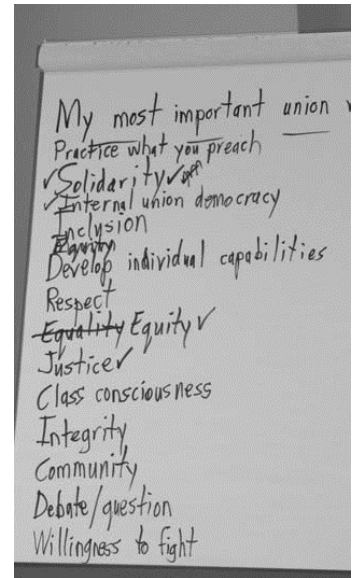 My most important union
Practice what you preach
✓Solidarity✓✓
✓Internal union democracy
Inclusion
Equity
Develop individual capabilities
Respect
Equality Equity ✓
Justice✓
Class consciousness
Integrity
Community
Debate/question
Willingness to fight